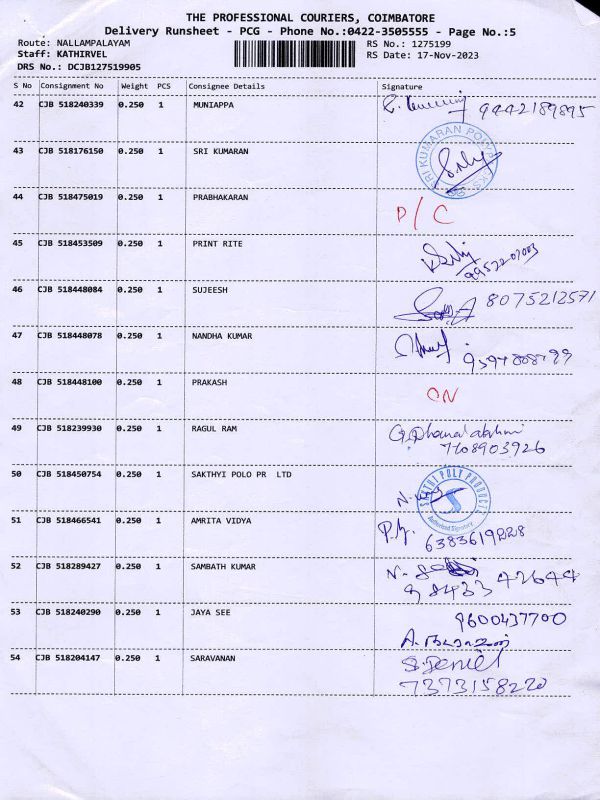 THE PROFESSIONAL COURIERS, COIMBATORE
Delivery Runsheet - PCG - Phone No.:0422-3505555 - Page No.:5
Route: NALLAMPALAYAM RS No.: 1275199
Staff: KATHIRVEL RS Date: 17-Nov-2023
DRS No.: DCJB127519905
S No Consignment No Weight PCS Consignee Details Signature
42 CJB 518240339 0.250 1 MUNIAPPA 9442189895
43 CJB 518176150 0.250 1 SRI KUMARAN SRI KUMARAN
44 CJB 518475019 0.250 1 PRABHAKARAN D/C
45 CJB 518453509 0.250 1 PRINT RITE
46 CJB 518448084 0.250 1 SUJEESH 8075212571
47 CJB 518448078 0.250 1 NANDHA KUMAR
48 CJB 518448100 0.250 1 PRAKASH ON
49 CJB 518239930 0.250 1 RAGUL RAM G. Dhanalakshmi
7708903926
50 CJB 518450754 0.250 1 SAKTHYI POLO PR LTD SAKTHI POLY PRODUCTS Authorised Signatory
51 CJB 518466541 0.250 1 AMRITA VIDYA
6383619228
52 CJB 518289427 0.250 1 SAMBATH KUMAR
98433 42644
53 CJB 518240290 0.250 1 JAYA SEE 9600437700
54 CJB 518204147 0.250 1 SARAVANAN
7373158220